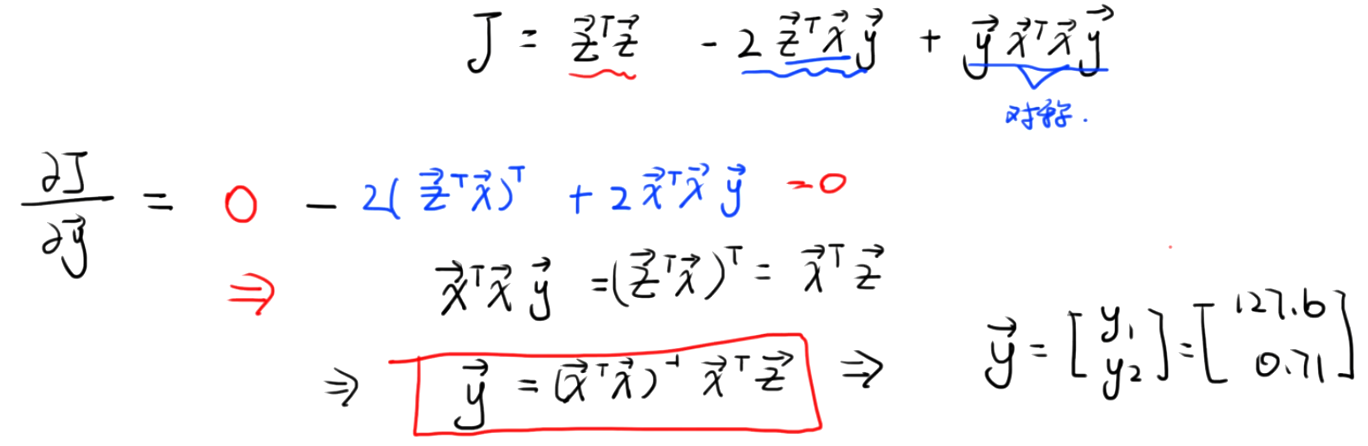 J = z⃗ᵀz⃗ - 2 z⃗ᵀx⃗ y⃗ + y⃗ x⃗ᵀx⃗ y⃗
对称.
∂J/∂y⃗ = 0 - 2(z⃗ᵀx⃗)ᵀ + 2x⃗ᵀx⃗ y⃗ = 0
⇒ x⃗ᵀx⃗ y⃗ = (z⃗ᵀx⃗)ᵀ = x⃗ᵀz⃗
⇒ y⃗ = (x⃗ᵀx⃗)⁻¹ x⃗ᵀz⃗ ⇒ y⃗ = [y₁ y₂] = [127.6 0.71]